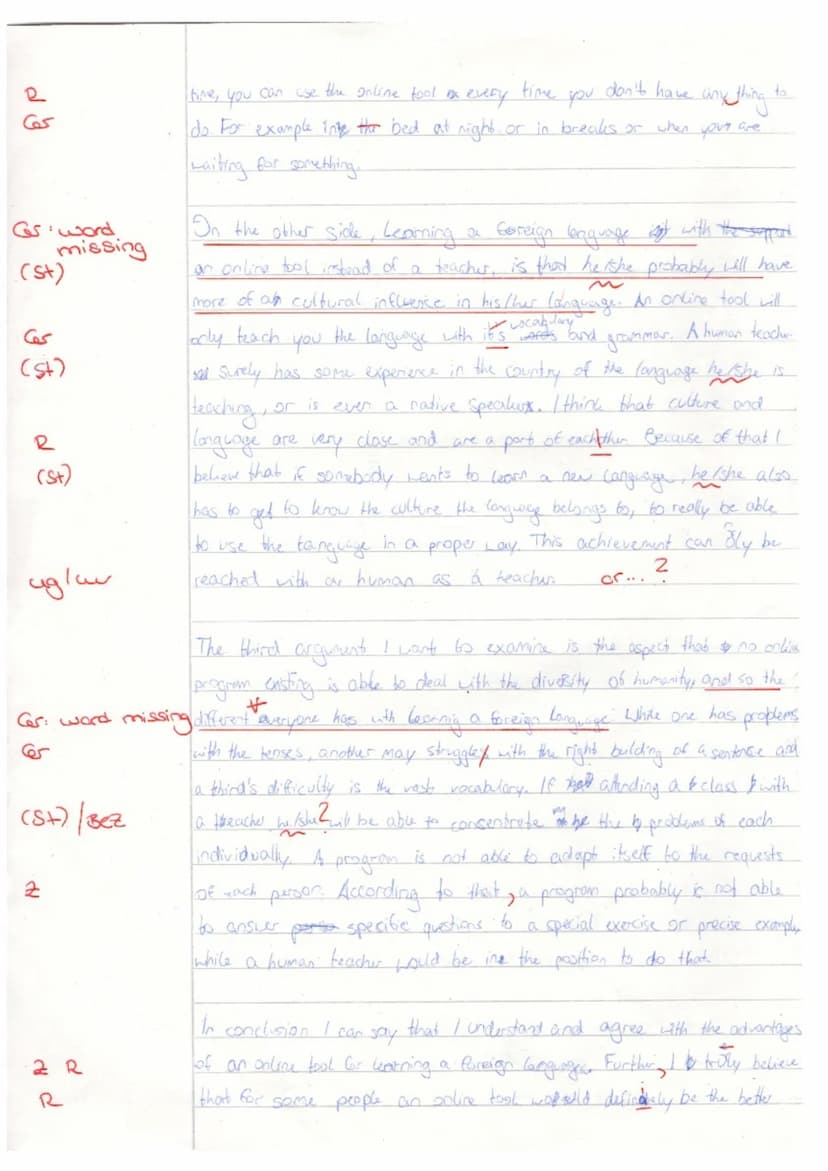 R time, you can use the online tool every time you don't have any thing to
Gr do. For example in bed at night or in breaks or when you are
waiting for something.
Gr: word missing On the other side, Learning a foreign language with the support
(St) an online tool instead of a teacher, is that he/she probably will have
more of a cultural influence in his/her language. An online tool will
vocabulary
Gr only teach you the language with it's words and grammar. A human teacher
(St) surely has some experience in the country of the language he/she is
teaching, or is even a native speakers. I think that culture and
R language are very close and are a part of eachother. Because of that I
(St) believe that if somebody wants to learn a new language, he/she also
has to get to know the culture the language belongs to, to really be able
to use the language in a proper way. This achievement can only be
reached with a human as a teacher. or...?
The third argument I want to examine is the aspect that no online
program existing is able to deal with the diversity of humanity, and so the
Gr: word missing different everyone has with learning a foreign language. While one has problems
Gr with the tenses, another may struggle with the right building of a sentence and
a third's difficulty is the vast vocabulary. If attending a class with
(St)/BEZ a teacher he/she? will be able to concentrate on the problems of each
individually. A program is not able to adapt itself to the requests
Z of each person. According to that, a program probably is not able
to answer specific questions to a special exercise or precise example,
while a human teacher would be in the position to do that.
In conclusion I can say that I understand and agree with the advantages
Z R of an online tool for learning a foreign language. Further, I truly believe
R that for some people an online tool would definitely be the better